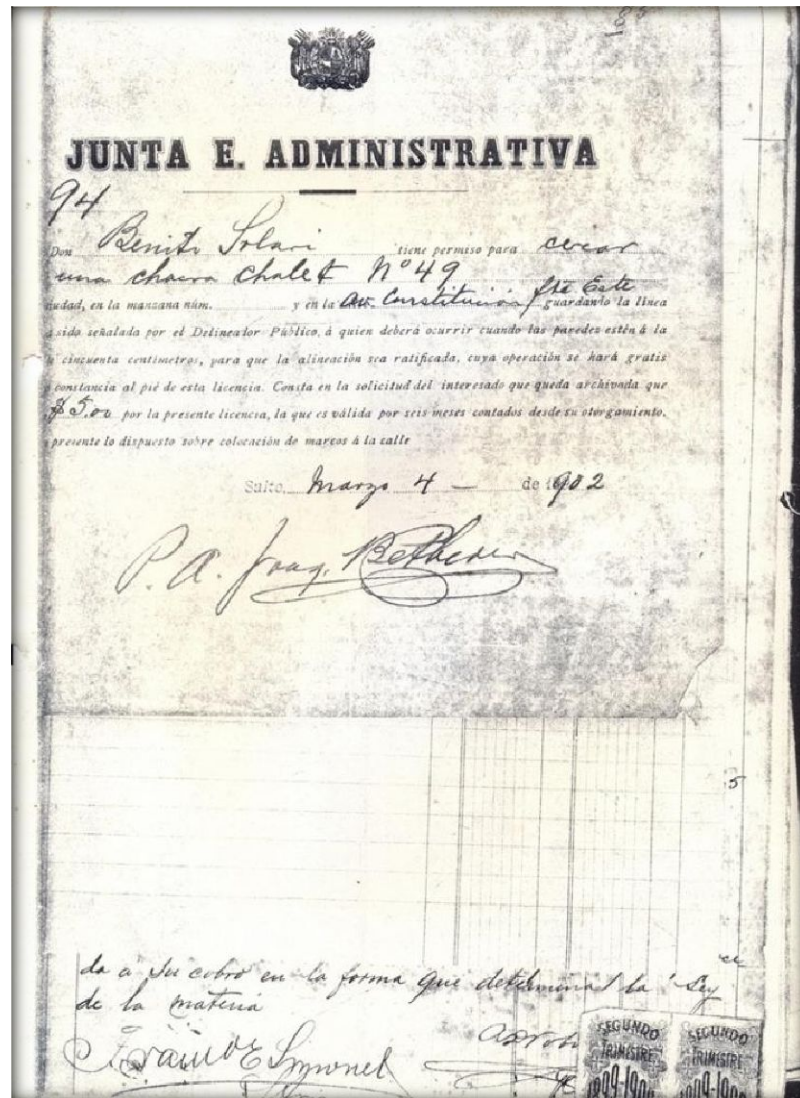 JUNTA E. ADMINISTRATIVA
94
Don Benito Solari tiene permiso para cercar
una chacra chalet Nº 49
iudad, en la manzana núm. y en la Av. Constitución fte Este guardando la línea
señalada por el Delineador Público, á quien deberá ocurrir cuando las paredes estén á la
cincuenta centímetros, para que la alineación sea ratificada, cuya operación se hará gratis
constancia al pié de esta licencia. Consta en la solicitud del interesado que queda archivada que
$ 5.00 por la presente licencia, la que es válida por seis meses contados desde su otorgamiento,
presente lo dispuesto sobre colocación de marcos á la calle
Salto, Marzo 4 — de 1902
P. A. Joaq.
5
da a su cobro en la forma que determina la Ley
de la materia
E Simonel
SEGUNDO TRIMESTRE 1899-1900
SEGUNDO TRIMESTRE